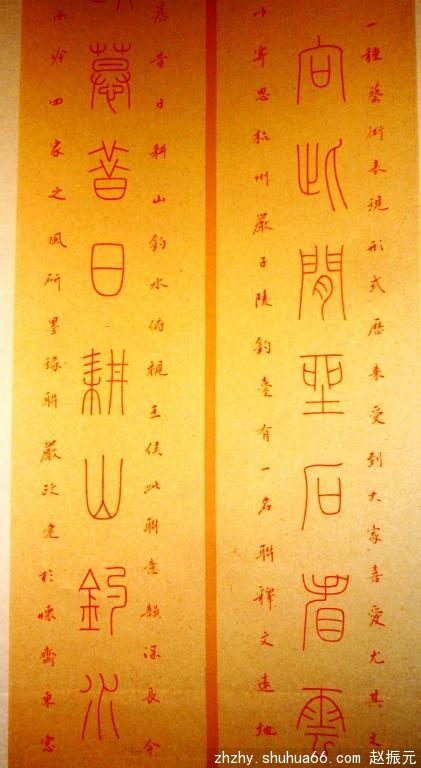 一種藝術表現形式歷來受到大家喜愛尤其文
向此間坐石看雲
以寄思杭州嚴子陵釣臺有一名聯釋文遠地
慕昔日耕山釣水俯視王侯此聯意韻深長今
慕昔日耕山釣水
西泠四家之風研墨聯嚴政於懷齋東窗
zhzhy.shuhua66.com 赵振元